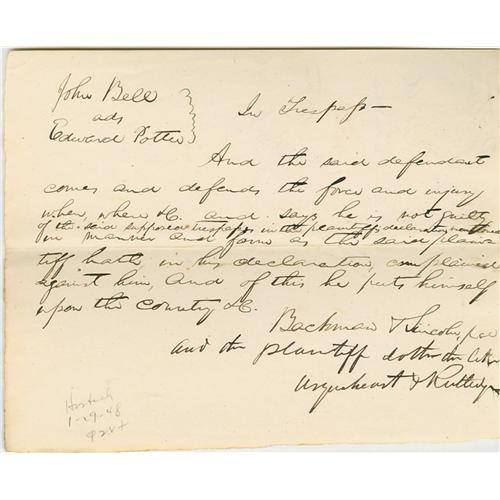 John Bell
ads
Edward Potter
In Trespass
And the said defendant
comes and defends the force and injury
when, where &c. and says he is not guilty
of the said supposed trespass in the plaintiffs declaration
in manner and form as the said plain
tiff hath in his declaration, complained
against him, and of this he puts himself
upon the country &c.
Backman & Lincoln, p.d.
and the plaintiff doth the like
Urquhart & Rutledge
1-19-48